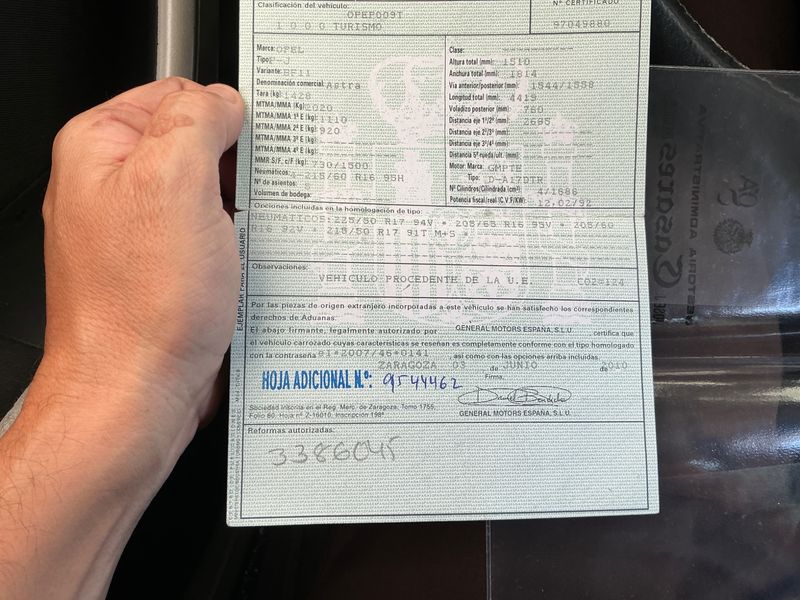 Clasificación del vehículo:
Nº CERTIFICADO
OPEP009T
1 0 0 0 TURISMO
97049880
Marca: OPEL
Tipo: P-J
Variante: BF11
Denominación comercial: Astra
Tara (kg): 1428
MTMA/MMA (Kg) 2020
MTMA/MMA 1º E (kg): 1110
MTMA/MMA 2º E (kg): 920
MTMA/MMA 3º E (kg):
MTMA/MMA 4º E (kg):
MMR S/F. c/F (kg): 730/1500
Neumáticos: 4-215/60 R16 95H
Nº de asientos:
Volumen de bodega:
Clase:
Altura total (mm): 1510
Anchura total (mm): 1814
Vía anterior/posterior (mm): 1544/1558
Longitud total (mm): 4419
Voladizo posterior (mm): 780
Distancia eje 1º/2º (mm): 2685
Distancia eje 2º/3º (mm):
Distancia eje 3º/4º (mm):
Distancia 5ª rueda/ult. (mm):
Motor: Marca: GMPTE
Tipo: D-A17DTR
Nº Cilindros/Cilindrada (cm³): 4/1686
Potencia fiscal/real (C.V.F/KW): 12.02/92
Opciones incluidas en la homologación de tipo:
NEUMATICOS:225/50 R17 94V * 205/65 R16 95V * 205/60
R16 92V * 215/50 R17 91T M+S *
Observaciones:
VEHICULO PROCEDENTE DE LA U.E. CO2=124
Por las piezas de origen extranjero incorporadas a este vehículo se han satisfecho los correspondientes
derechos de Aduanas.
El abajo firmante, legalmente autorizado por GENERAL MOTORS ESPAÑA, S.L.U. certifica que
el vehículo carrozado cuyas características se reseñan es completamente conforme con el tipo homologado
con la contraseña e1*2007/46*0141 , así como con las opciones arriba incluidas.
ZARAGOZA 03 de JUNIO de 2010
HOJA ADICIONAL N.º: 9544462
Firma,
Sociedad Inscrita en el Reg. Merc. de Zaragoza, Tomo 1755,
Folio 60, Hoja nº Z-16010, Inscripción 198ª
GENERAL MOTORS ESPAÑA, S.L.U.
Reformas autorizadas:
3386045
EJEMPLAR PARA EL USUARIO